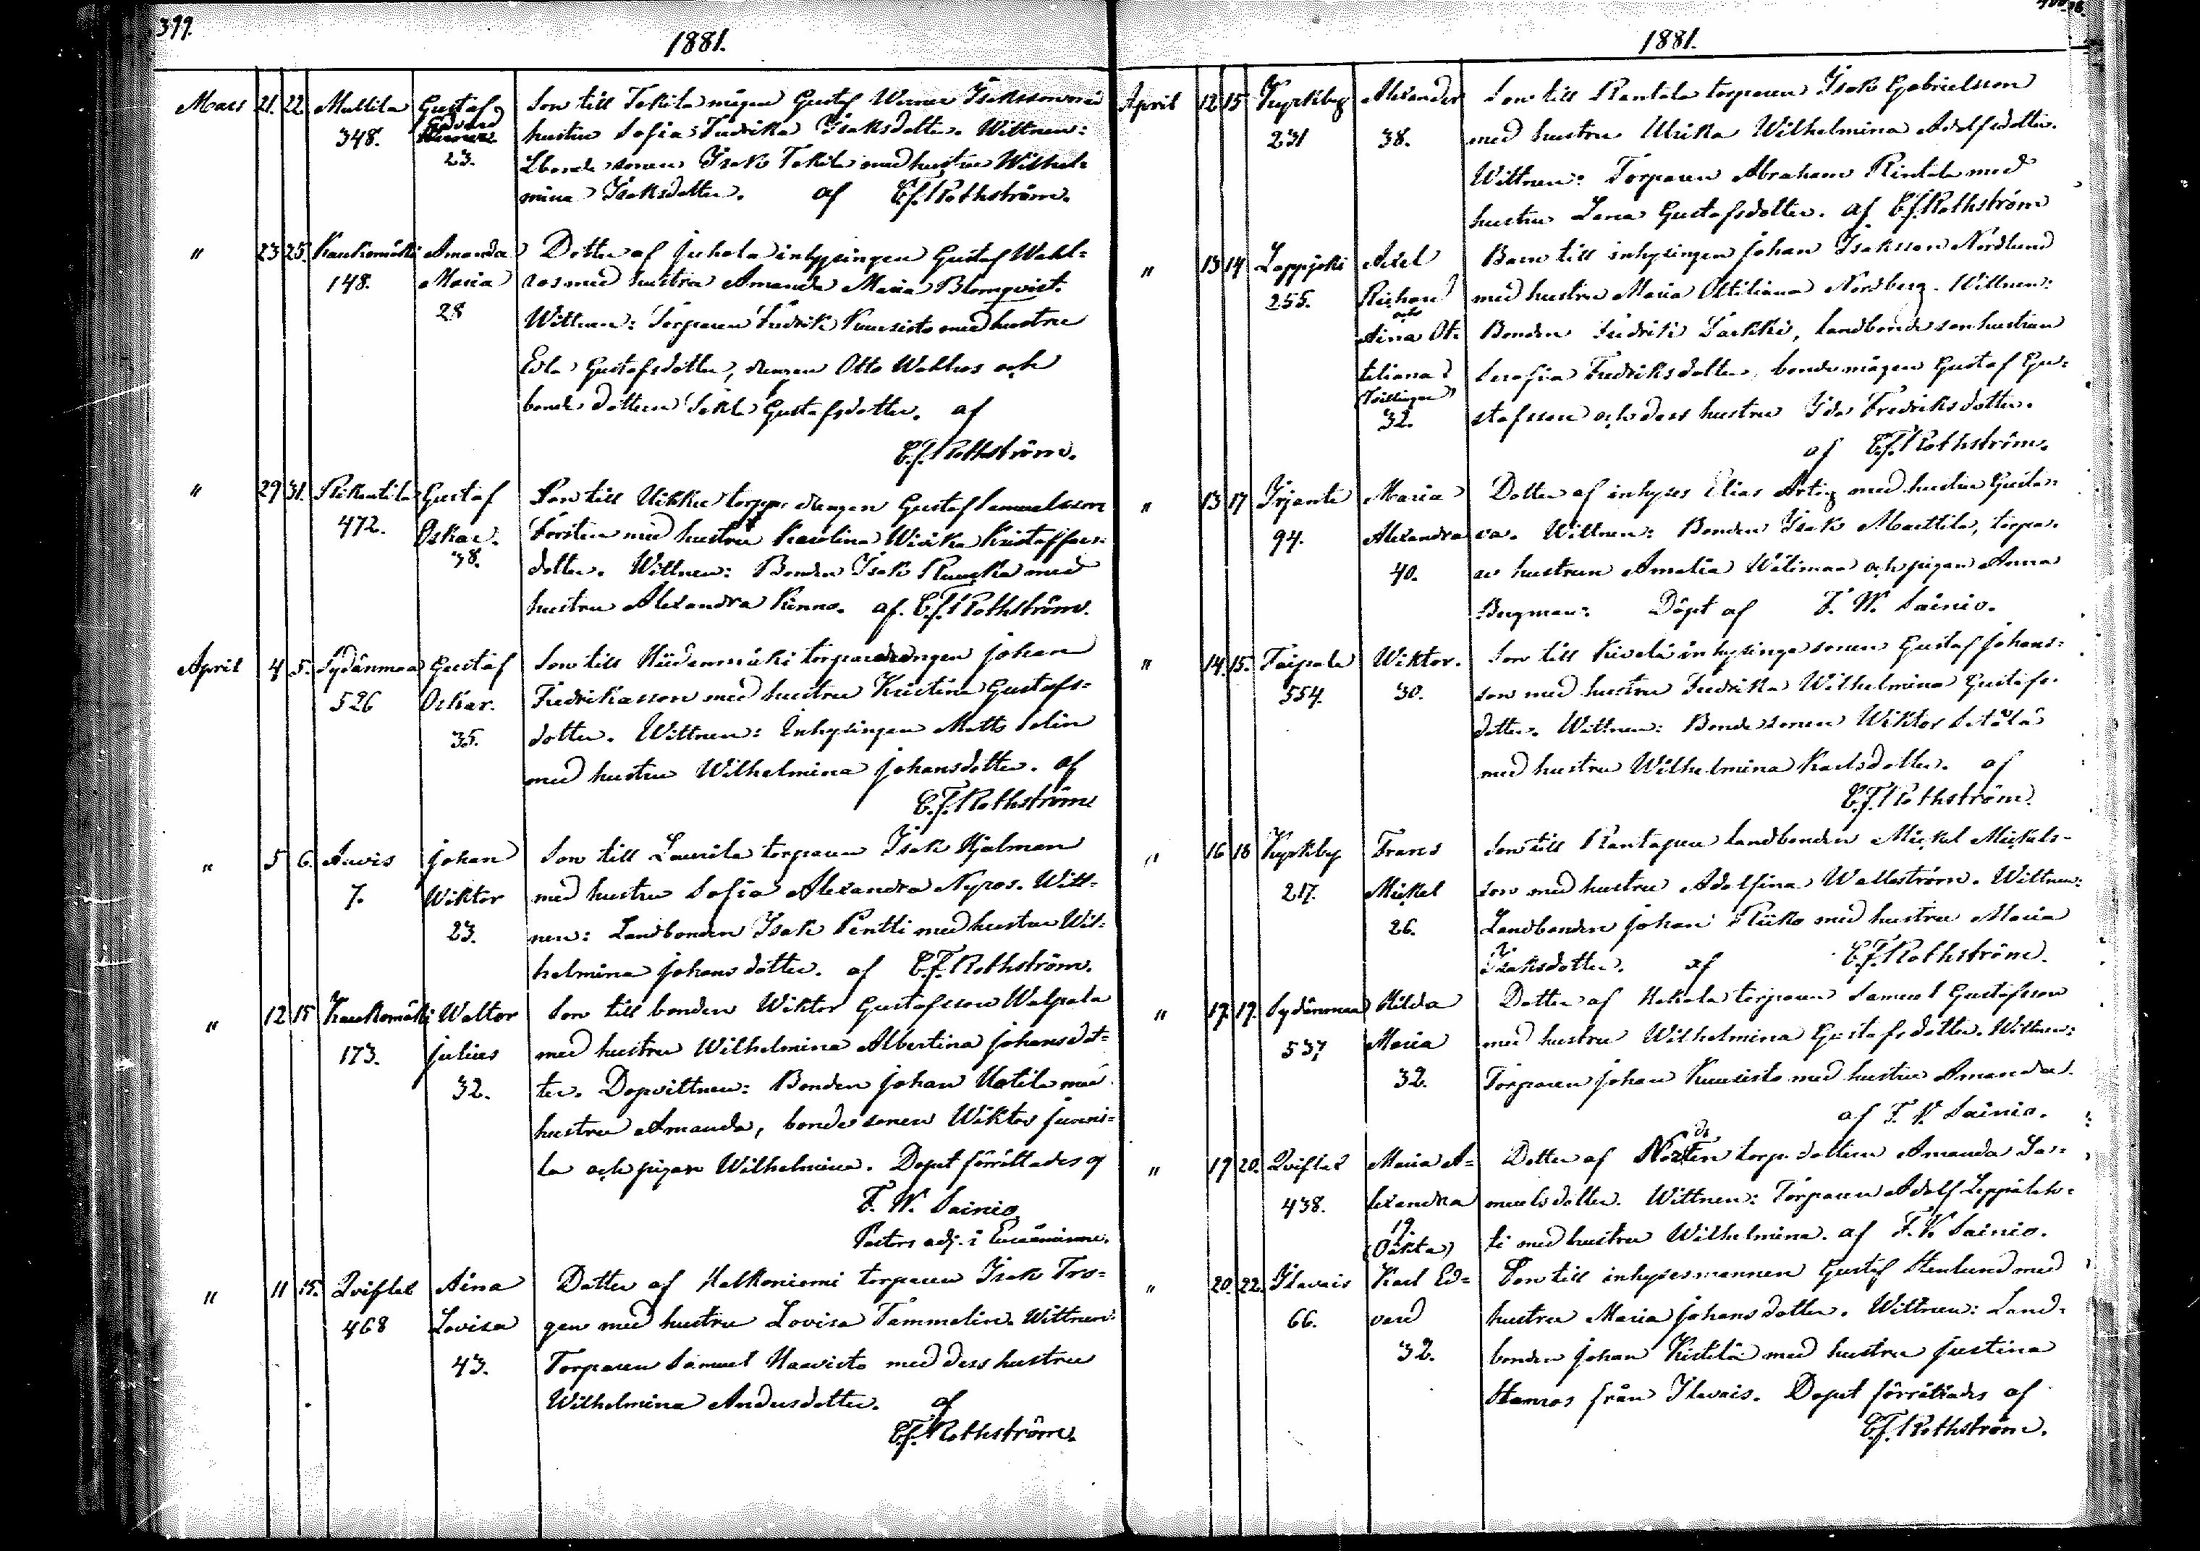 399.
1881.
Mars 21. 22. Mullila Gustaf Son till Tekila mågen Gustaf Werner Isaksson med
348. Edvard hustru Sofia Fredrika Isaksdotter. Wittnen:
23. Lbonde sonen Isak Tekila med hustru Wilhel-
mina Isaksdotter. af C.f. Rothström.
" 23 25. Kaukomäki Amanda Dotter af Juhola inhysingen Gustaf Wahl-
148. Maria ros med hustru Amanda Maria Blomqvist.
28 Wittnen: Torparen Fredrik Kuusisto med hustru
Edla Gustafsdotter, drengen Otto Wahlros och
bonde dottern Tekla Gustafsdotter. af
C.f. Rothström.
" 29 31. Gustaf Son till Uikku torpare drengen Gustaf Samuelsson
472. Oskar. Forsten med hustru Karolina Wivika Kristoffers-
38. dotter. Wittnen: Bonden Isak med
hustru Alexandra Kinno. af. C.f. Rothström.
April 4 5. Sydänmaa Gustaf Son till Hiidenmäki torparedrengen Johan
526 Oskar. Fredriksson med hustru Kristina Gustafs-
35. dotter. Wittnen: Inhysingen Matts Selin
med hustru Wilhelmina Johansdotter. af
C.F. Rothström
" 5 6. Auvis Johan Son till Laurila torparen Isak Hjelman
7. Wiktor med hustru Sofia Alexandra Nyros. Witt-
23. nen: Landbonden Isak Pentti med hustru Wil-
helmina Johans dotter. af C.F. Rothström.
" 12 15 Kaukomäki Waltor Son till bonden Wiktor Gustafsson Walpala
173. Julius med hustru Wilhelmina Albertina Johansdot-
32. ter. Dopvittnen: Bonden Johan Uotila med
hustru Amanda, bonde sonen Wiktor Juuni-
la och pigan Wilhelmina. Dopet förrättades af
F. W. Sainio
Pastors adj. i Euraåminne.
" 11 15. Qviflax Aina Dotter af Halkoniemi torparen Isak Tro-
468 Lovisa gen med hustru Lovisa Tammelin. Wittnen:
43. Torparen Samuel Haavisto med dess hustru
Wilhelmina Andersdotter. af
C.f. Rothström.
1881.
April 12 15 Kyrkby Alexander Son till Rantala torparen Isak Gabrielsson
231 38. med hustru Ulrika Wilhelmina Adolfsdotter.
Wittnen: Torparen Abraham Rintala med
hustru Lena Gustafsdotter. af C.f. Rothström
" 13 14 Lappijoki Axel Barn till inhysingen Johan Isaksson Nordlund
255. Rickard med hustru Maria Ottiliana Nordberg. Wittnen:
och
Aina Ot- Bonden Fredrik Sarkki, landbonde sonhustrun
tiliana Serafia Fredriksdotter, bonde mågen Gustaf Gu-
(Tvillingar)
32. stafsson och dess hustru Ida Fredriksdotter.
af C.f. Rothström.
" 13 17 Irjanti Maria Dotter af inhyses Elias Artig med hustru Gusta-
94. Alexandra va. Wittnen: Bonden Isak Marttila, torpa-
40. re hustrun Amalia Wälimaa och pigan Anna
Bergman: Döpt af F. W. Sainio.
" 14. 15. Taipale Wiktor. Son till Kivelä inhysinge sonen Gustaf Johans-
554. 30. son med hustru Fredrika Wilhelmina Gustafs-
dotter. Wittnen: Bonde sonen Wiktor Setälä
med hustru Wilhelmina Karlsdotter. af
C.F. Rothström.
" 16 18 Kyrkby Frans Son till Rantapere landbonden Mickel Mickels-
217. Mickel son med hustru Adolfina Wallström. Wittnen:
26. Landbonden Johan Riiko med hustru Maria
Isaksdotter. af C.F. Rothström.
" 17. 19. Sydänmaa Hilda Dotter af Hakala torparen Samuel Gustafsson
537 Maria med hustru Wilhelmina Gustafsdotter. Wittnen:
32. Torparen Johan Kuusisto med hustru Amanda.
af F. V. Sainio.
" 19 20. Qviflax Maria A- Dotter af torp. dottern Amanda Sa-
438. lexandra muelsdotter. Wittnen: Torparen Adolf Leppälah-
19.
(Oäkta) ti med hustru Wilhelmina. af F. V. Sainio.
" 20. 22. Ilavais Karl Ed- Son till inhysesmannen Gustaf Stenlund med
66. vard hustru Maria Johansdotter. Wittnen: Land-
32. bonden Johan Kistilä med hustru Justina
Stamros från Ilavais. Dopet förrättades af
C.f. Rothström.